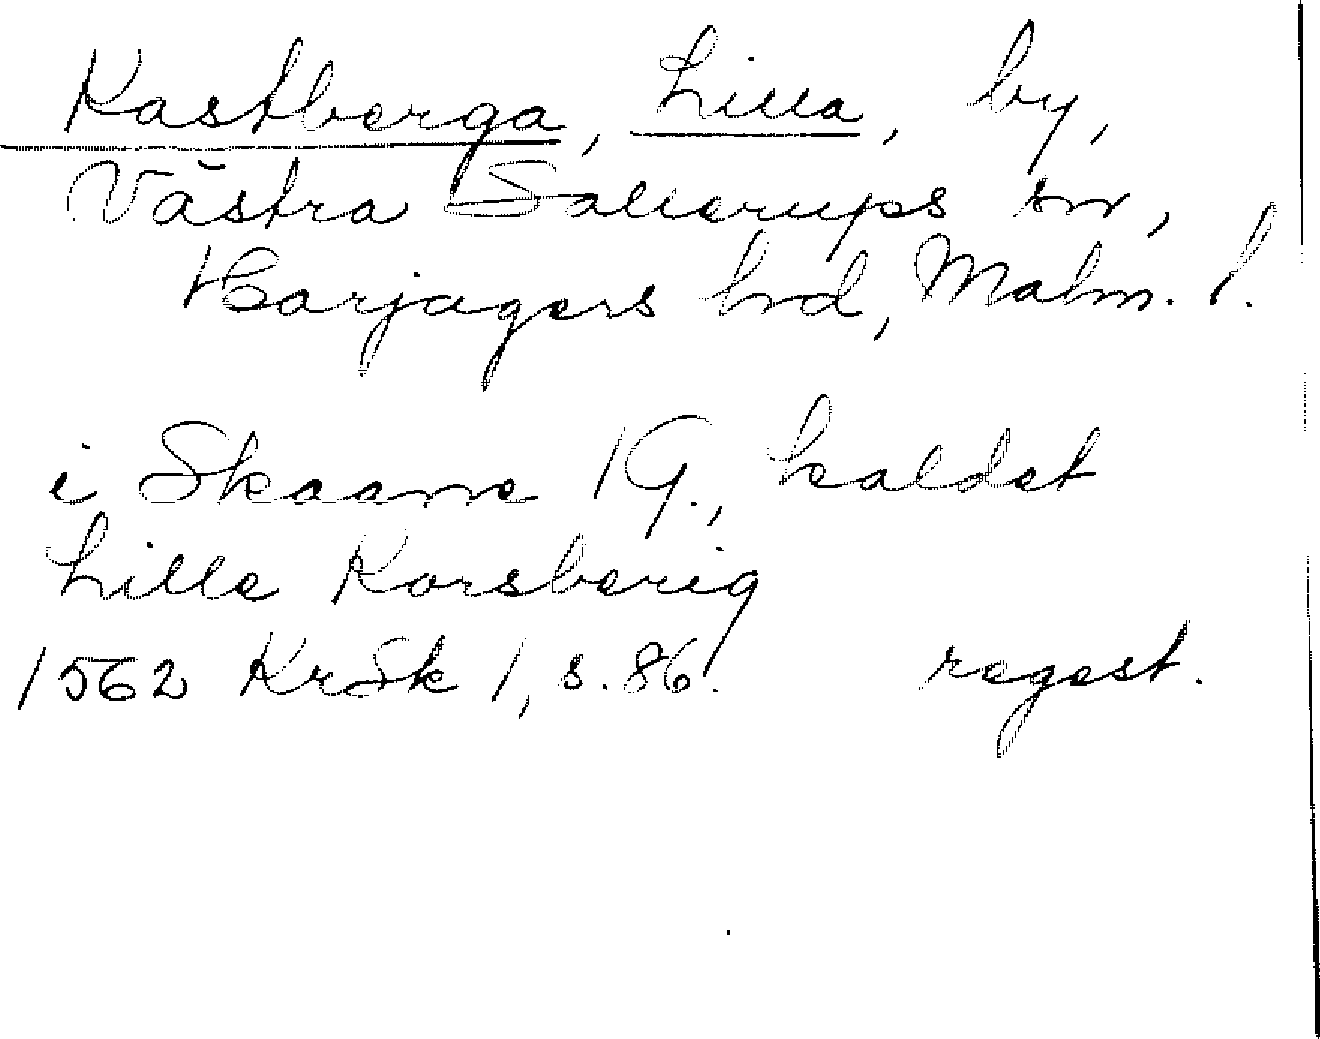 Kastberga, Lilla, by,
Västra Sallerups sn,
Harjagers hrd, Malm. l.
i Skaane 1 G., kaldet
Lille Karsberig
1562 KrSk 1, s. 86. regest.